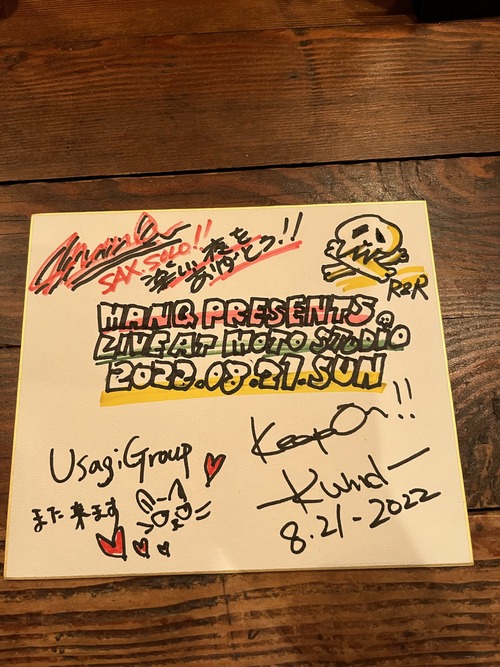 SAX. SOLO!!
楽しい夜を
ありがとう!!
R&R
MANQ PRESENTS.
LIVE AT MOTO STUDIO
2022.08.21.SUN
Keep On!!
8.21-2022
UsagiGroup
また来ます